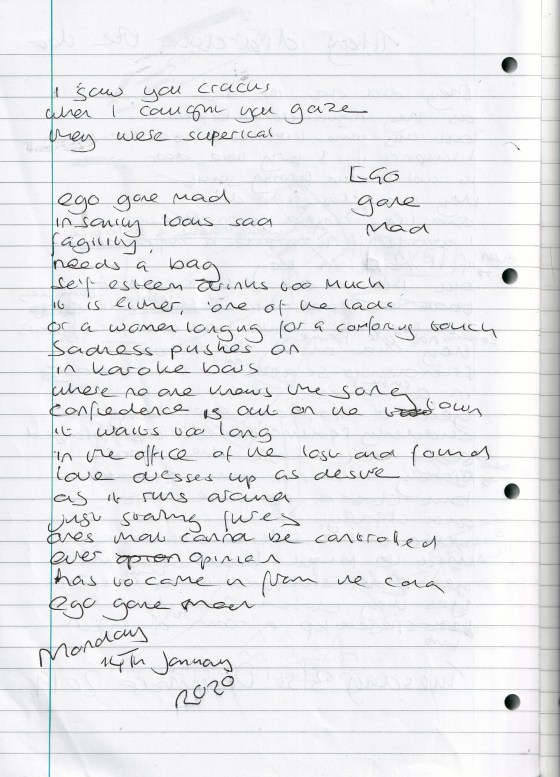 I saw you cracks
when I caught you gaze
they were superical
EGO
gone
Mad
ego gone mad
insanity looks sad
fagility,
needs a bag
self esteem drinks too much
it is either, one of the lads
or a women longing for a comforing touch
Sadness pushes on
in karoke bars
where no one knows the song
confiedence is out on the town
it waits too long
in the office of the lost and found
love dresses up as desire
as it runs around
just starting fires
ones that cannot be controlled
even opinion
has to come in from the cold
ego gone mad
Monday
14th January
2020